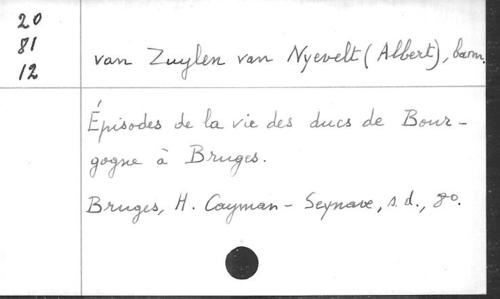 20
81
12
van Zuylen van Nyevelt (Albert), baron.
Épisodes de la vie des ducs de Bour-
gogne à Bruges.
Bruges, H. Cayman - Seynave, s.d., 8o.